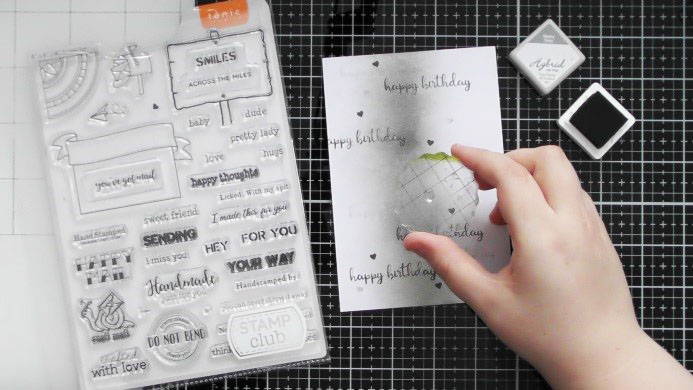 Tonic
SMILES
ACROSS THE MILES
baby
dude
pretty lady
love
hugs
you've got mail
happy thoughts
Licked, With my spit
sweet friend
I made this for you
Hand Stamped
SENDING
HEY
FOR YOU
I miss you
HAPPY
MAIL
YOUR WAY
Handmade
Handstamped by
DO NOT BEND
STAMP
club
with love
happy birthday
happy birthday
happy birthday
happy birthday
Hybrid